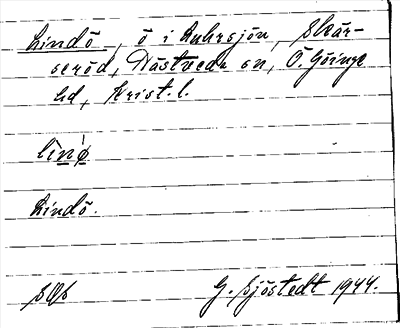 Lindö, ö i Luhrsjön, Skär-
seröd, Västveds sn, Ö. Göinge
hd, Krist. l.
lìnø̀
Lindö.
G. Sjöstedt 1944.